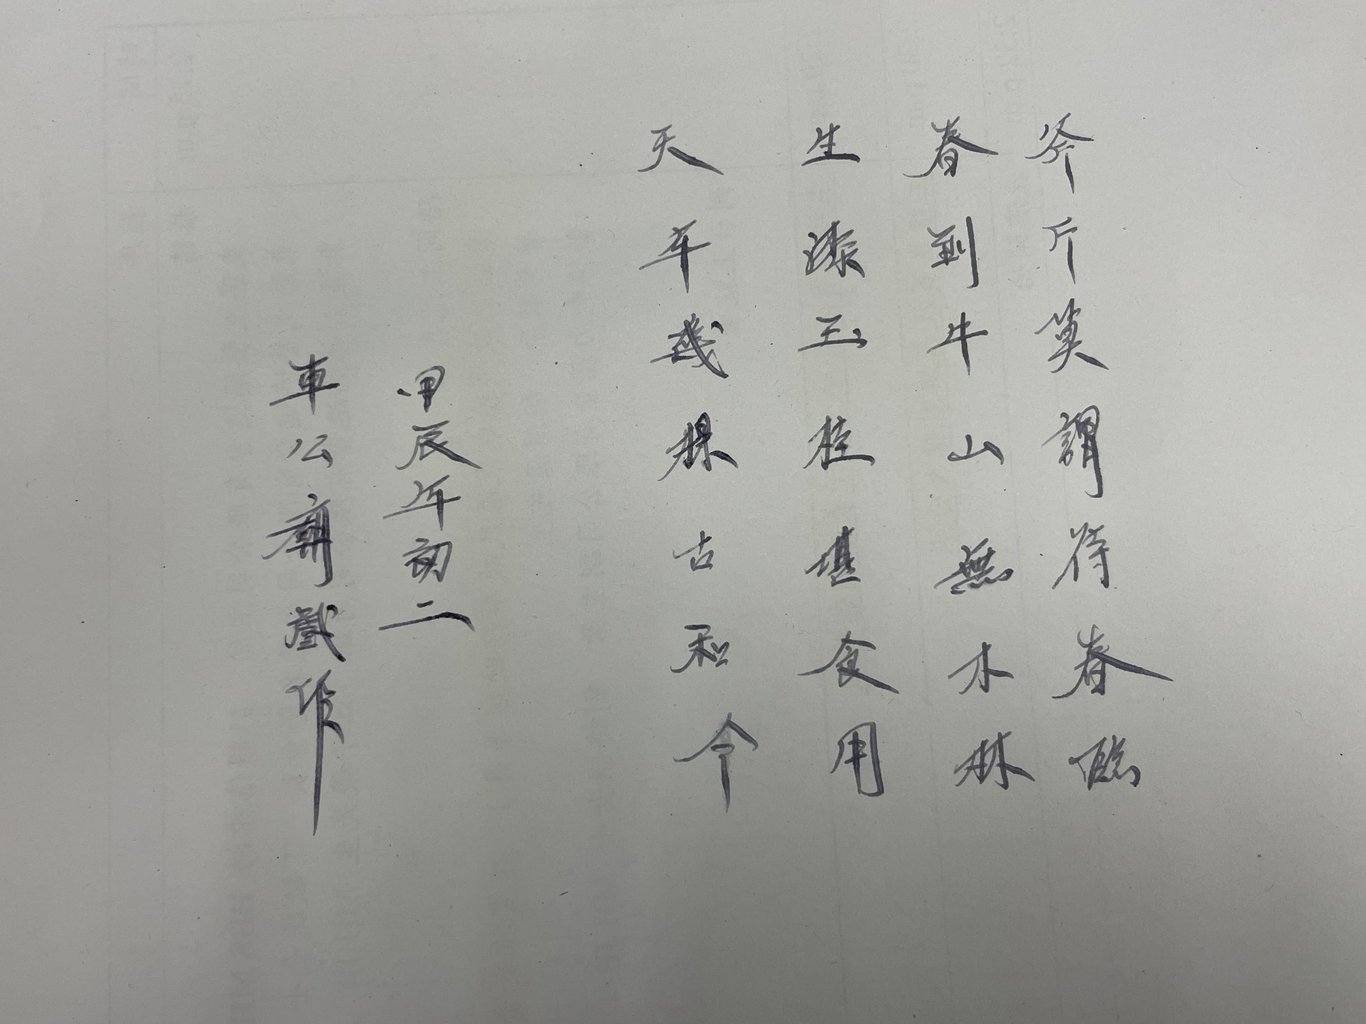 斧斤莫謂待春臨
春到牛山無木林
生漆玉桂堪食用
天年幾棵古和今
甲辰年初二
車公廟戲作